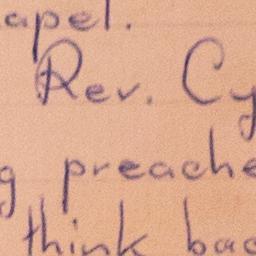 apel.
Rev. Cy
g preache
think bac